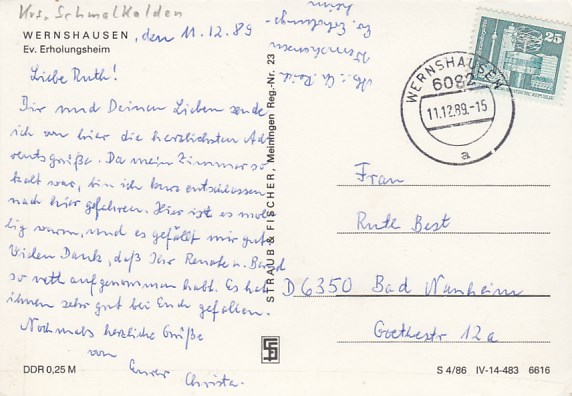 Krs. Schmalkalden
WERNSHAUSEN, den 11.12.89
Ev. Erholungsheim
Liebe Ruth!
Dir und Deinen Lieben sende
ich von hier die herzlichsten Ad-
ventsgrüße. Da mein Zimmer so
kalt war, bin ich kurz entschlossen
nach hier gefahren. Hier ist es mol-
lig warm, und es gefällt mir gut.
Vielen Dank, daß Ihr Renate u. Bernd
so nett aufgenommen habt. Es hat
ihnen sehr gut bei Euch gefallen.
Nochmals herzliche Grüße
von
Eurer Christa.
DDR 0,25 M
Wernshausen
Ev. Erholungs-
heim
STRAUB & FISCHER, Meiningen Reg.-Nr. 23
25
WERNSHAUSEN
6082
11.12.89.-15
a
Frau
Ruth Best
D 6350 Bad Nauheim
Goethestr 12a
S 4/86 IV-14-483 6616